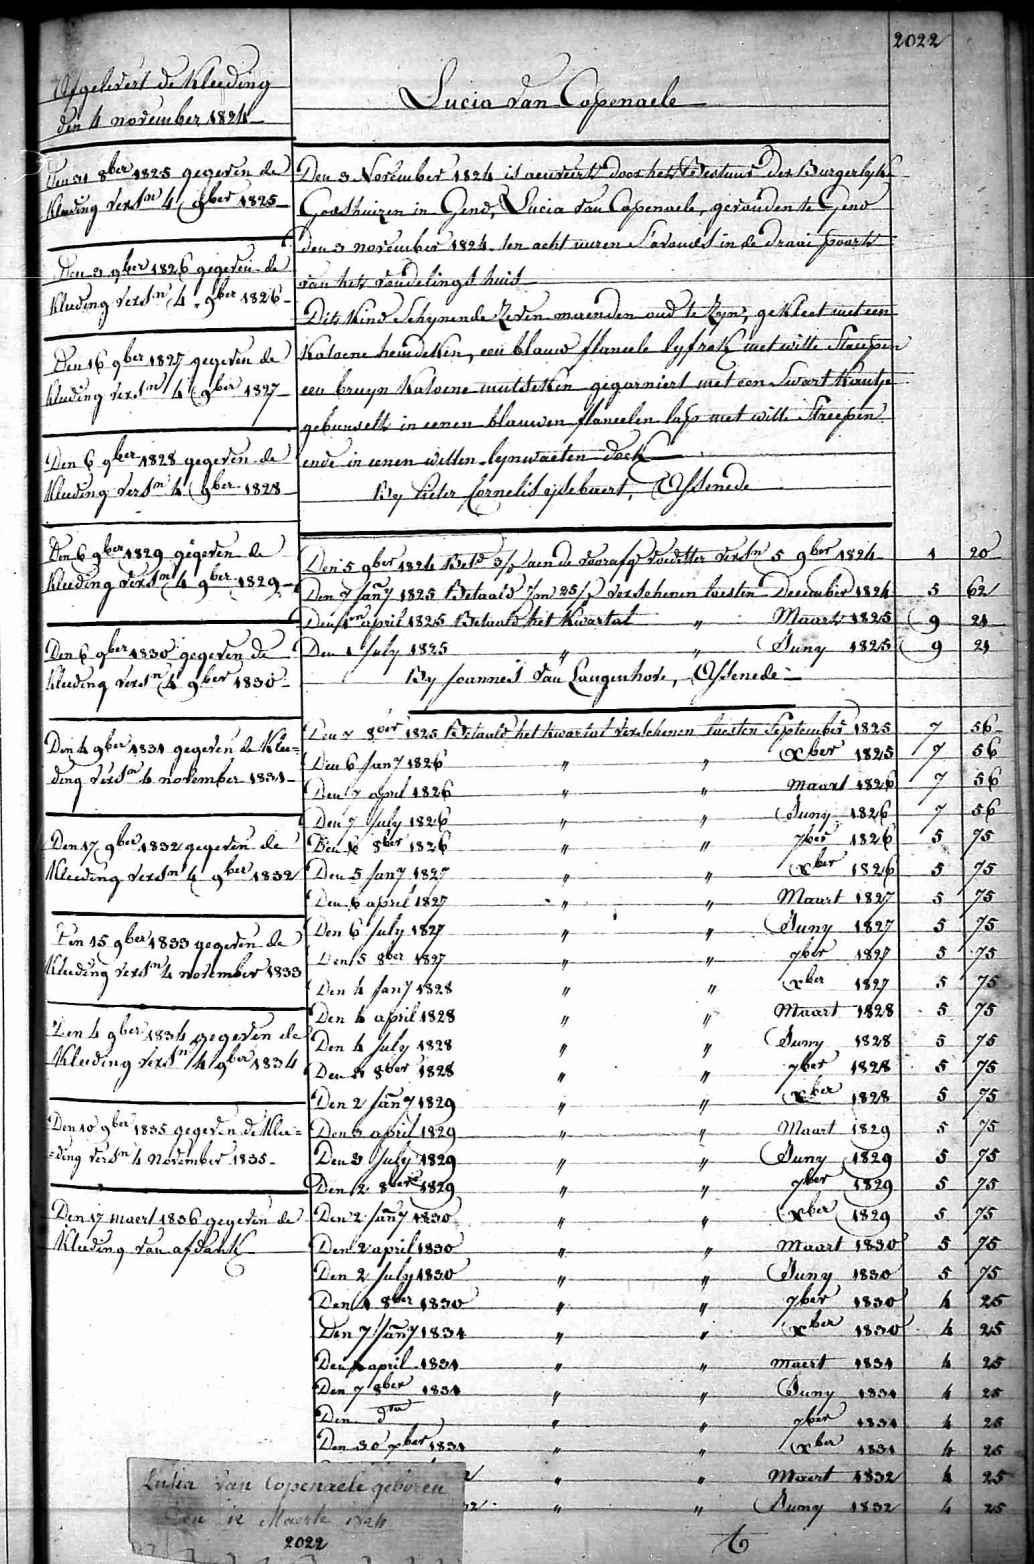 2022
Afgelevert de Kleeding
den 4 november 1824
Lucia van Copenaele
Den 31 8ber 1825 gegeven de
Kleeding versn 4 9ber 1825
Den 3 9ber 1826 gegeven de
Kleeding versn 4 9ber 1826
Den 16 9ber 1827 gegeven de
Kleeding versn 4 9ber 1827
Den 6 9ber 1828 gegeven de
Kleeding versn 4 9ber 1828
Den 6 9ber 1829 gegeven de
Kleeding versn 4 9ber 1829
Den 6 9ber 1830 gegeven de
Kleeding versn 4 9ber 1830
Den 4 9ber 1831 gegeven de Klee=
ding versn 4 november 1831
Den 17 9ber 1832 gegeven de
Kleeding versn 4 9ber 1832
Den 15 9ber 1833 gegeven de
Kleeding versn 4 november 1833
Den 4 9ber 1834 gegeven de
Kleeding versn 4 9ber 1834
Den 10 9ber 1835 gegeven de Klee=
=ding versn 4 November 1835
Den 17 maert 1836 gegeven de
Kleeding van afdank
Den 3 November 1824 is door het Bestuur der Burgerlyke
Godshuizen in Gend, Lucia van Copenaele, gevonden te Gend
den 3 november 1824 ten acht uuren S'avonds in de draai poort
van het vondelings huis
Dits Kind Schynende Zeven maenden oud te Zyn, gekleet met een
Katoene hemdeken, een blauw flaneele lyfrok met witte Streepen
een bruyn Katoene mutseken gegarniert met een Swart Kantje
gebusselt in eenen blauwen flaneelen lap met witte Streepen
ende in eenen witten lynwaeten doek
By Pieter Cornelis ysebaert, Assenede
Den 5 9ber 1824 Betd 3/p aen de voorafg voedster versn 5 9ber 1824 1 20
Den 7 Jany 1825 Betaald 25/p verschenen luesten December 1824 5 62
Den 1en april 1825 Betaald het Kwartal " Maart 1825 9 21
Den 1 July 1825 " " Juny 1825 9 21
By Joannes van Langenhove, Assenede
Den 7 8ber 1825 Betaald het Kwartal verschenen luesten September 1825 7 56
Den 6 Jany 1826 " " Xber 1825 7 56
Den 7 april 1826 " " maart 1826 7 56
Den 7 July 1826 " " Juny 1826 7 56
Den 8ber 1826 " " 7ber 1826 5 75
Den 5 Jany 1827 " " Xber 1826 5 75
Den 6 april 1827 " " Maart 1827 5 75
Den 6 July 1827 " " Juny 1827 5 75
Den 5 8ber 1827 " " 7ber 1827 5 75
Den 4 Jany 1828 " " Xber 1827 5 75
Den 4 april 1828 " " Maart 1828 5 75
Den 4 July 1828 " " Juny 1828 5 75
Den 8ber 1828 " " 7ber 1828 5 75
Den 2 Jany 1829 " " Xber 1828 5 75
Den 3 april 1829 " " Maart 1829 5 75
Den 3 July 1829 " " Juny 1829 5 75
Den 2 8ber 1829 " " 7ber 1829 5 75
Den 2 Jany 1830 " " Xber 1829 5 75
Den 2 april 1830 " " Maart 1830 5 75
Den 2 July 1830 " " Juny 1830 5 75
Den 1 8ber 1830 " " 7ber 1830 4 25
Den 7 Jany 1831 " " Xber 1830 4 25
Den april 1831 " " maert 1831 4 25
Den 7 8ber 1831 " " Juny 1831 4 25
Den dto " " 7ber 1831 4 25
Den 30 Xber 1831 " " Xber 1831 4 25
" " Maert 1832 4 25
" " Juny 1832 4 25
Lucia van Copenaele geboren
den 12 Maerte 1824
2022